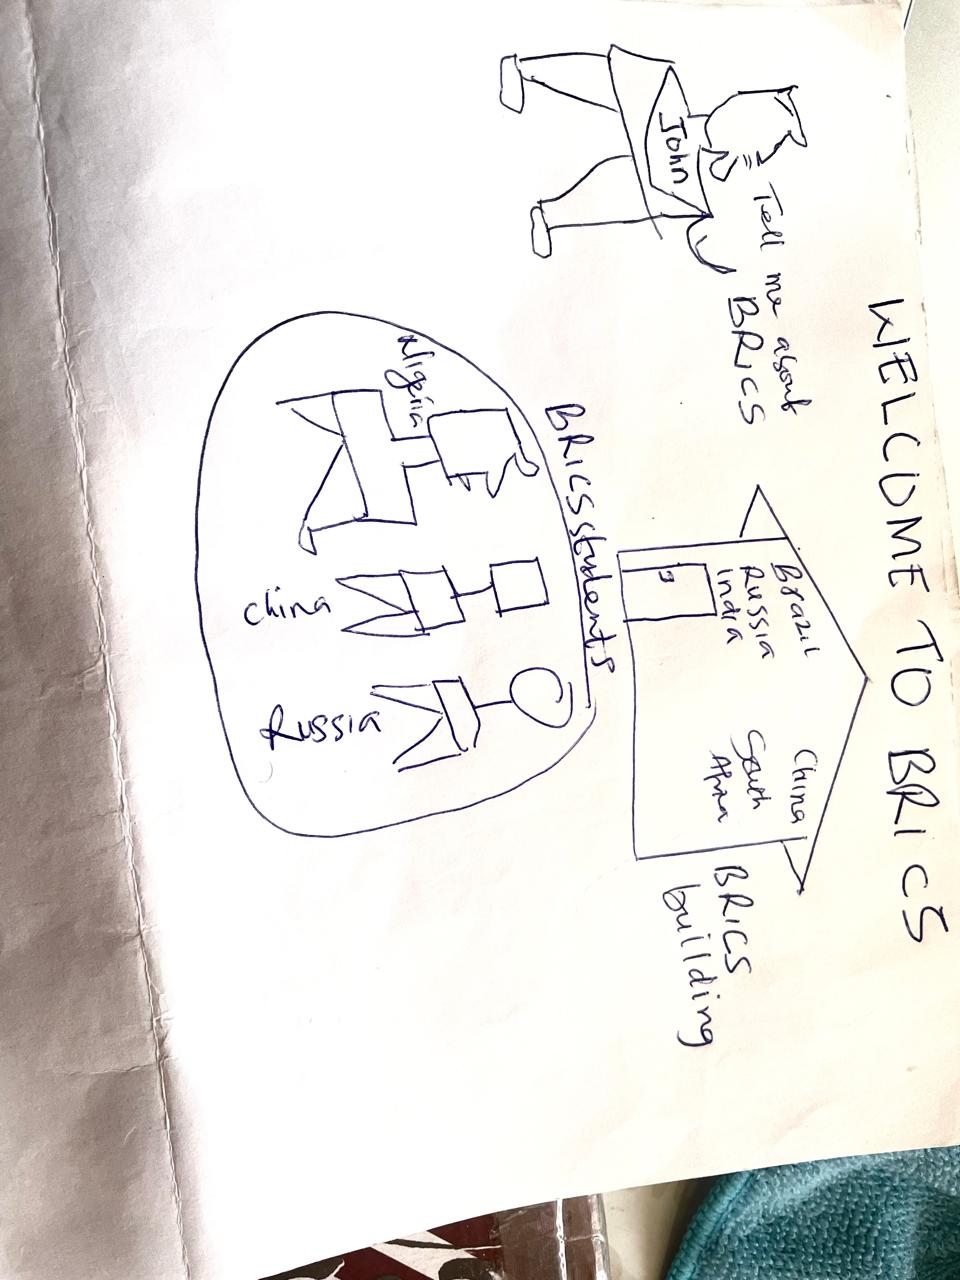 WELCOME TO BRICS
Tell me about
BRICS
John
Brazil
Russia
India
China
South
Africa
BRICS
building
BRICS students
Nigeria
China
Russia